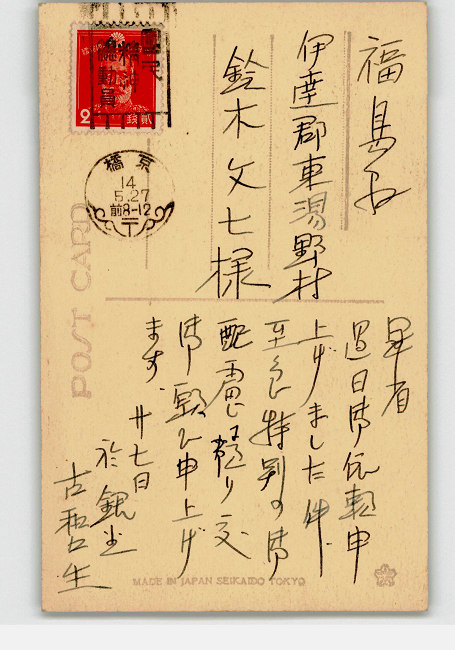 福島県
伊達郡東湯野村
鈴木文七様
早省
過日御依頼申
上げました件
至急特別の御
配慮に預り度
御願ひ申上げ
ます、
廿七日
於銀座
古
生
国民
精神
総動員
2
銭貳
京橋
14
5.27
前8-12
〒
POST CARD
MADE IN JAPAN SEIKAIDO TOKYO